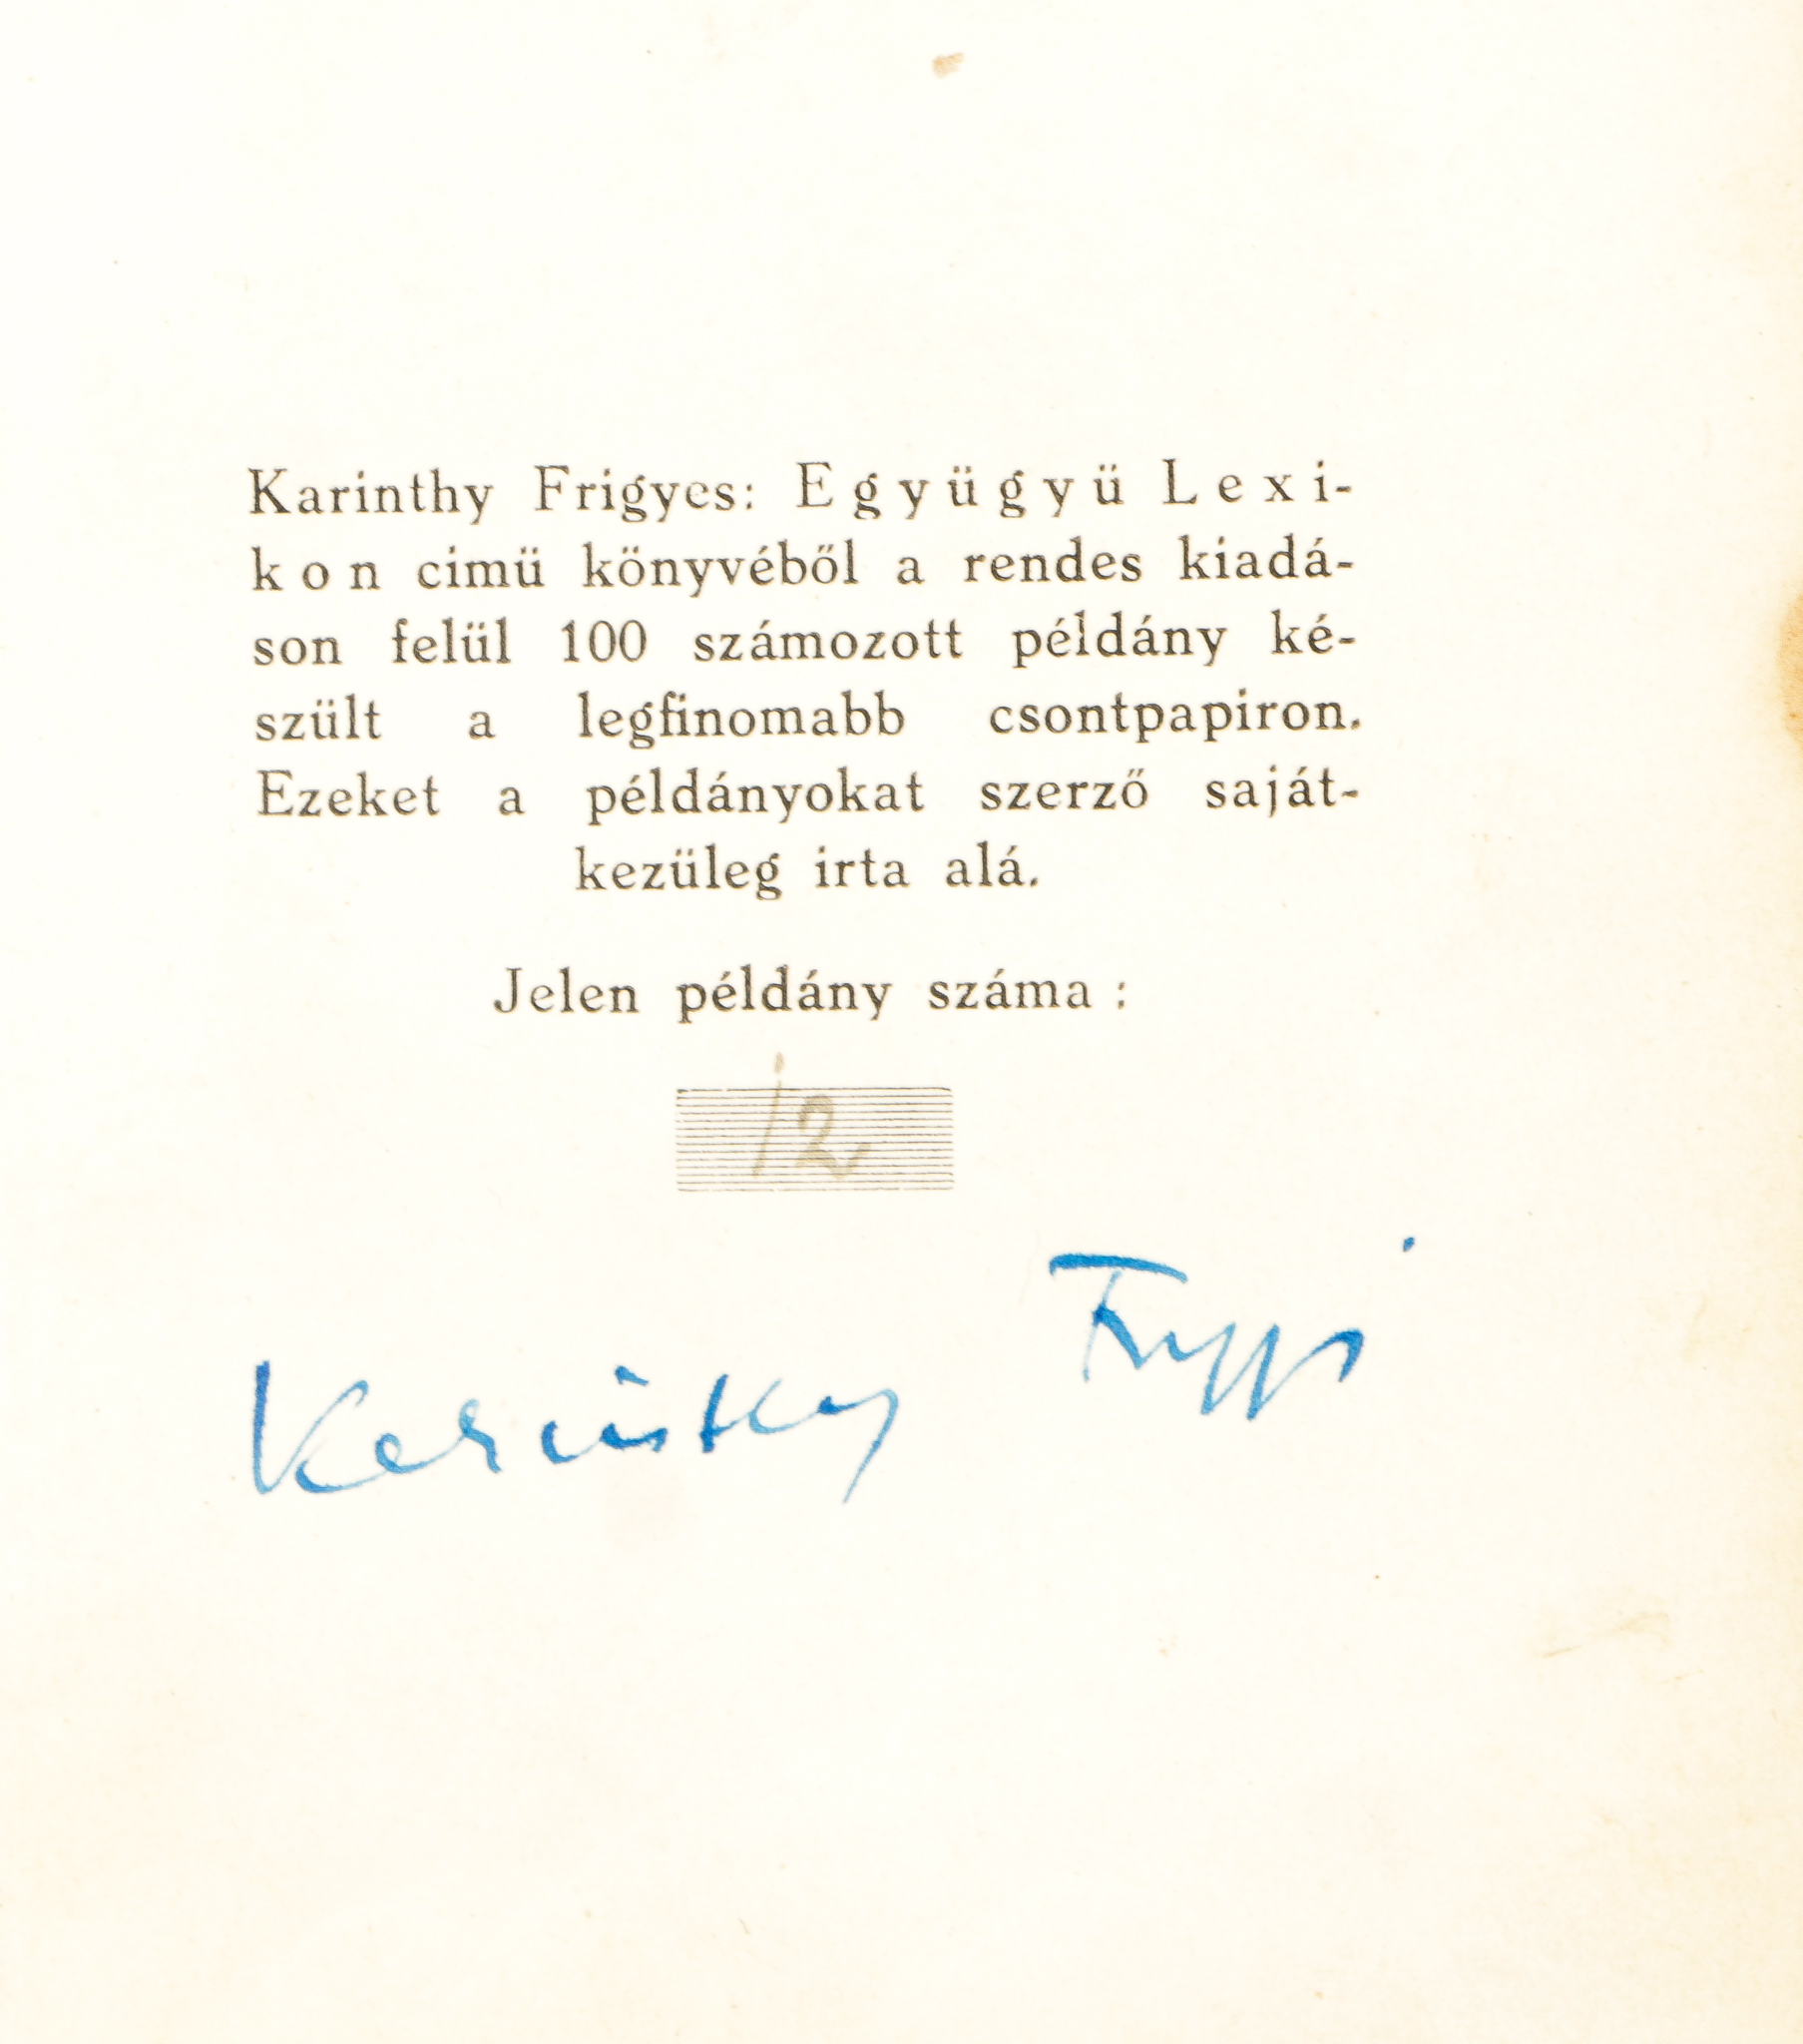 Karinthy Frigyes: Együgyü Lexi-
kon cimü könyvéből a rendes kiadá-
son felül 100 számozott példány ké-
szült a legfinomabb csontpapiron.
Ezeket a példányokat szerző saját-
kezüleg irta alá.
Jelen példány száma :
12
Karinthy Frigyes